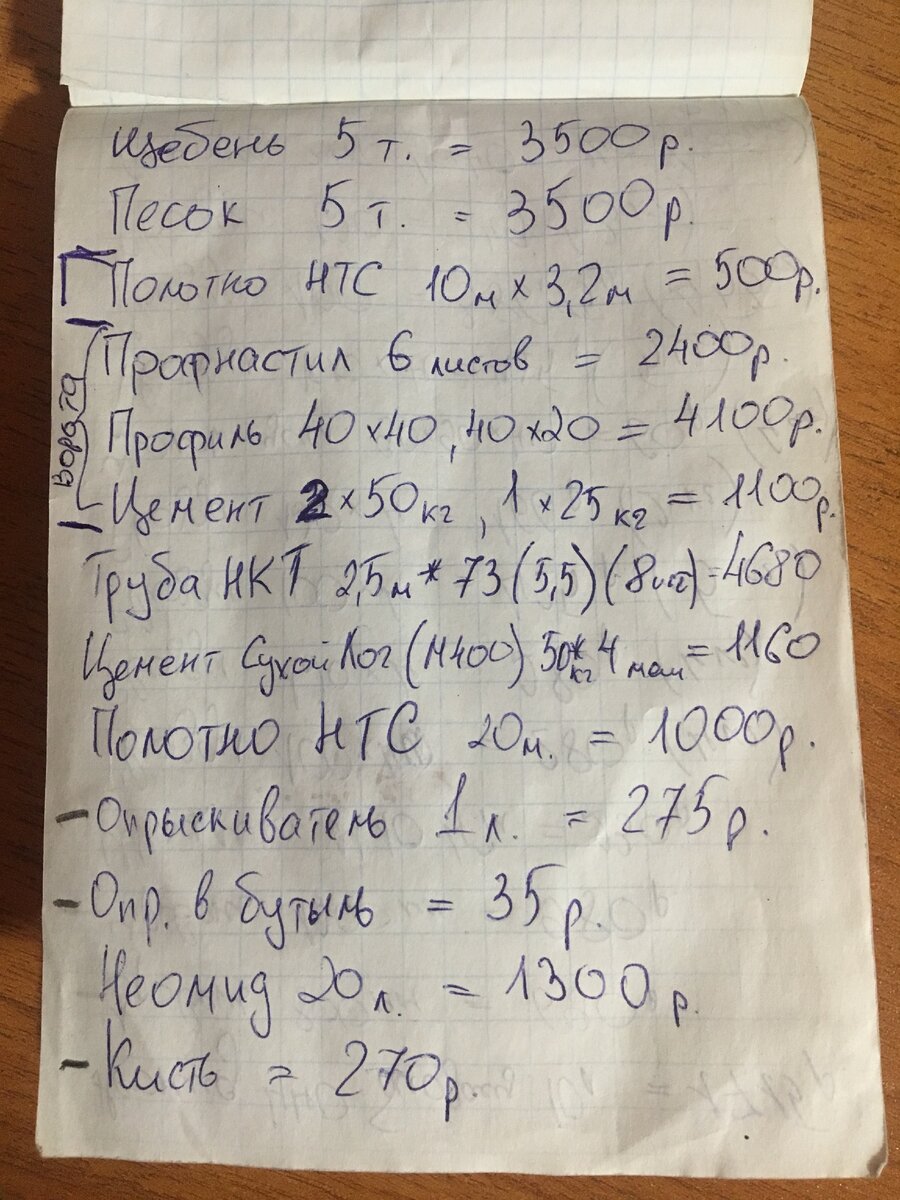 Щебень 5 т. = 3500 р.
Песок 5 т. = 3500 р.
Полотно НТС 10 м × 3,2 м = 500 р.
Ворота
Профнастил 6 листов = 2400 р.
Профиль 40×40, 40×20 = 4100 р.
Цемент 2×50 кг, 1×25 кг = 1100 р.
Труба НКТ 2,5 м * 73 (5,5) (8 шт) = 4680
Цемент Сухой Лог (М400) 50 кг * 4 меш = 1160
Полотно НТС 20 м. = 1000 р.
- Опрыскиватель 1 л. = 275 р.
- Опр. в бутыль = 35 р.
Неомид 20 л. = 1300 р.
- Кисть = 270 р